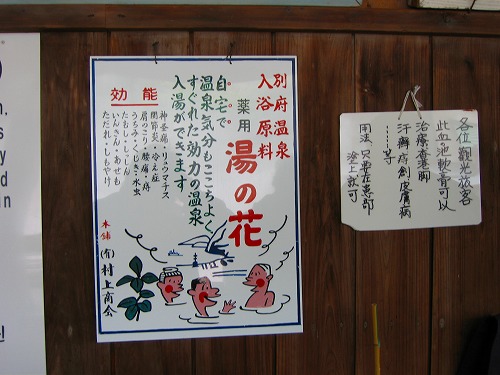 別府温泉
入浴原料
薬用
湯の花
自宅で
温泉気分もここちよく
すぐれた効力の温泉
入湯ができます
効能
神圣痛・リュウマチス
関節炎・冷え症
肩のこり・腰痛・痔
うちみ・くじき・水虫
たむし・しっしん
いんきん・あせも
ただれ・しもやけ
本舗
(有)村上商会
各位観光旅客
此血池軟膏可以
治療香港脚
汗癬痔創皮膚病
……等
用法只要在患部
塗上就可